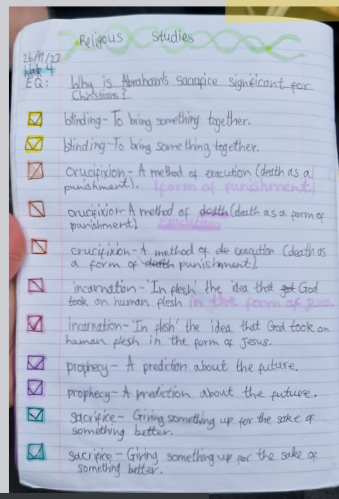 Religous Studies
26/11/22
Week 4
EQ: Why is Abraham's sacrafice significant for
Christians?
blinding- To bring something together.
blinding- To bring something together.
Crucifixion- A method of execution (death as a
punishment). (form of punishment)
crucifixion- A method of death (death as a form of
punishment)
crucifixion- A method of de execution (death as
a form of death punishment)
incarnation- 'In flesh' the idea that got God
took on human flesh in the form of Jesus.
incarnation- 'In flesh' the idea that God took on
human flesh in the form of Jesus.
prophecy- A prediction about the future.
prophecy- A prediction about the future.
sacrifice- Giving something up for the sake of
something better.
sacrifice- Giving something up for the sake of
something better.